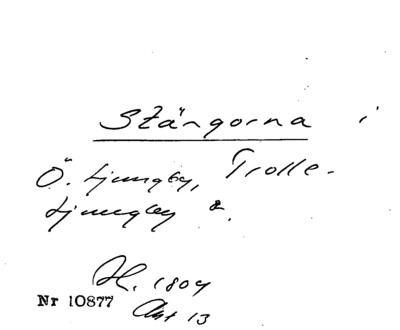 Stängorna i
Ö. Ljungby, Trolle-
Ljungby &.
H. 1804
Nr 10877 Akt 13